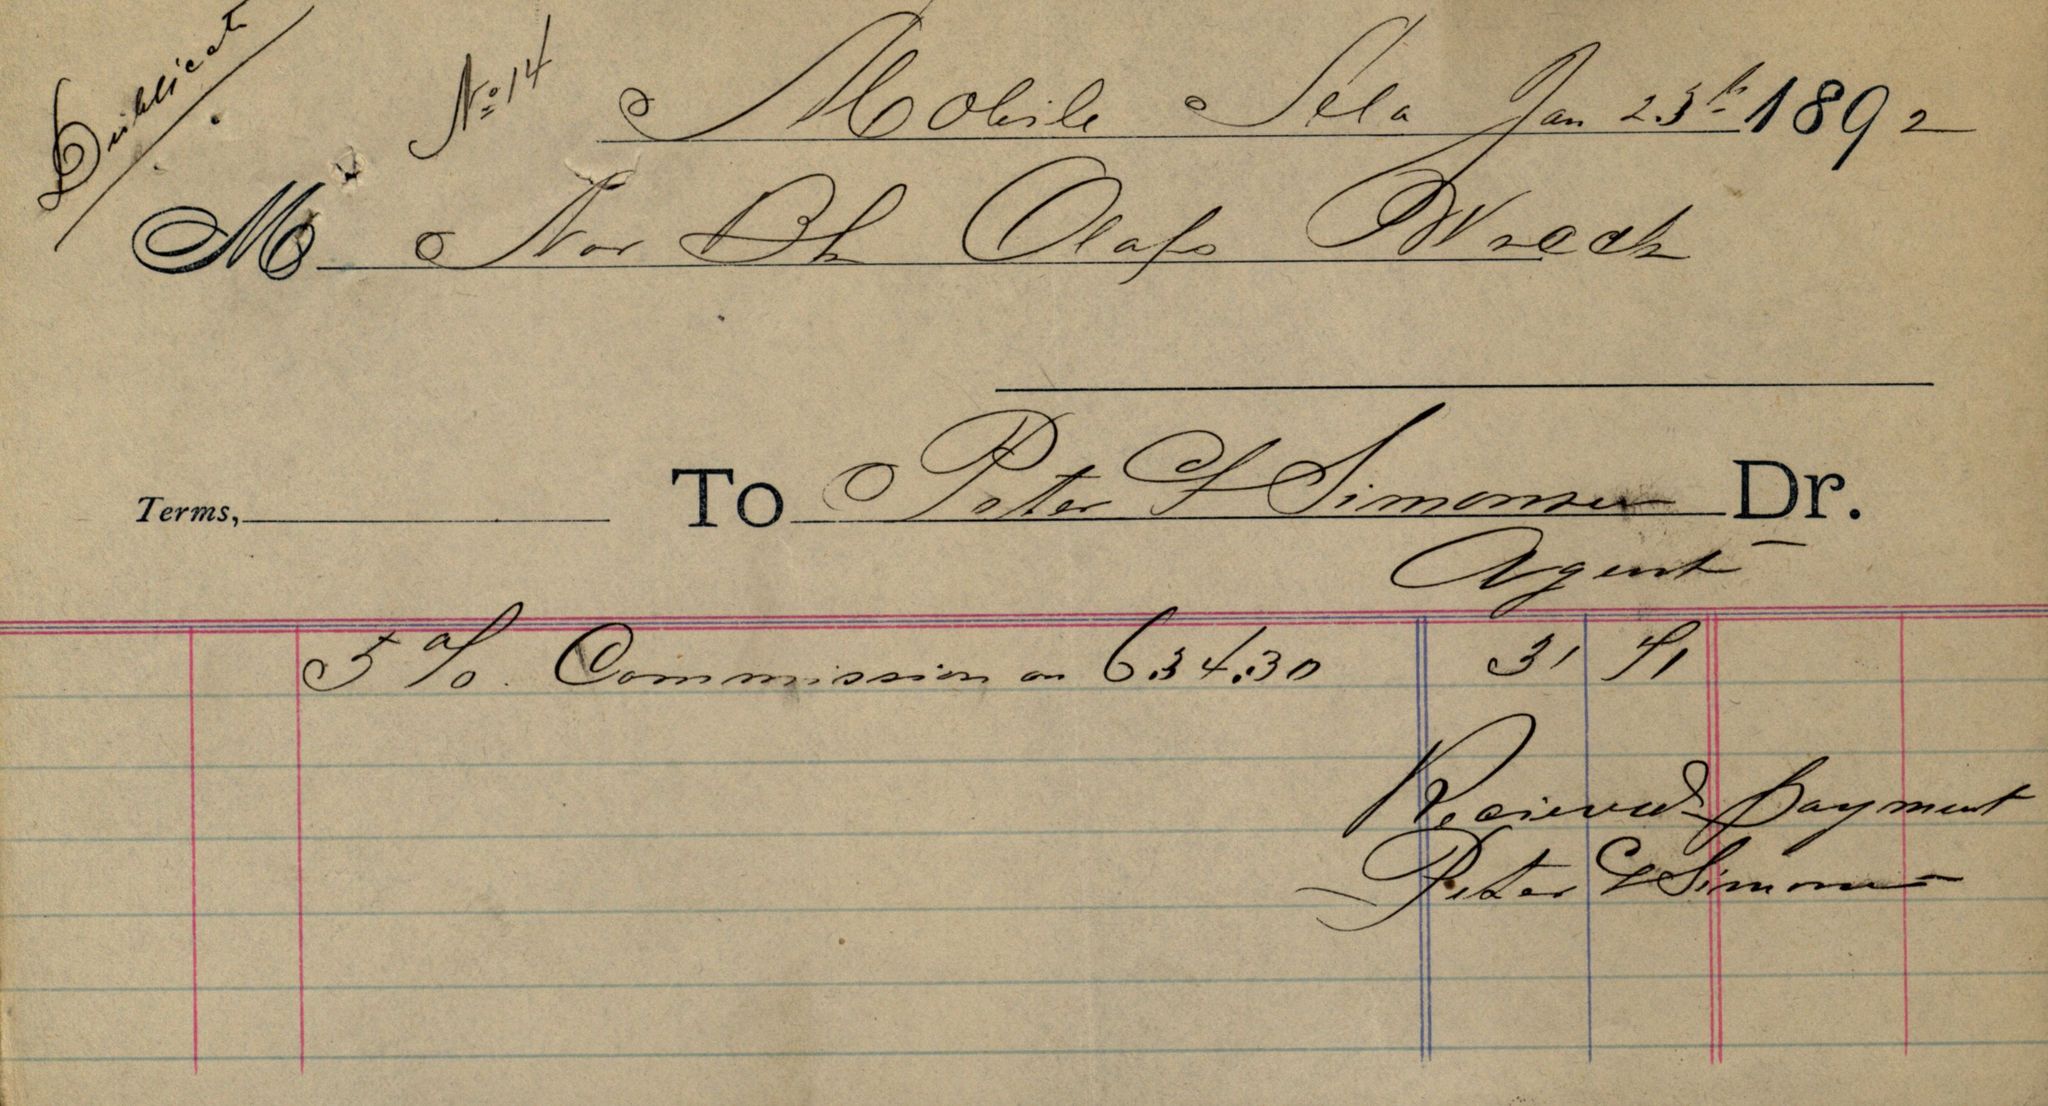 Duplicat
No 14
Mobile Ala Jan 23th 1892
M Nor Bk Olafs Wreck
Terms, To Peter L Simonsen Dr.
Agent
5 % Commission on 634.30 31 71
Recieved payment
Peter L Simonsen